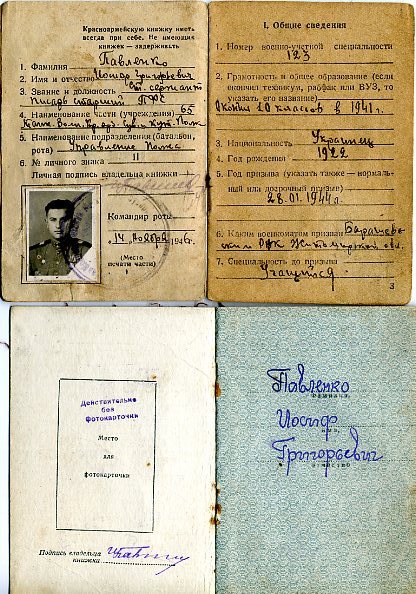 Красноармейскую книжку иметь
всегда при себе. Не имеющих
книжек — задерживать
1. Фамилия Павленко
2. Имя и отчество Иосиф Григорьевич
3. Звание и должность Ст. сержант
Писарь старший
4. Наименование части (учреждения) 65
5. Наименование подразделения (батальон,
рота) Управление Полка
6. № личного знака II
Личная подпись владельца книжки
Командир роты
„14" ноября 1946 г.
(Место
печати части)
I. Общие сведения
1. Номер военно-учетной специальности
123
2. Грамотность и общее образование (если
окончил техникум, рабфак или ВУЗ, то
указать его название)
Окончил 10 классов в 1941 г.
3. Национальность Украинец
4. Год рождения 1922
5. Год призыва (указать также — нормаль-
ный или досрочный призыв)
28.01.1944 г.
6. Каким военкоматом призван Барашев-
ским РВК Житомирской обл.
7. Специальность до призыва
Учащийся
3
Действительно
без
фотокарточки
Место
для
фотокарточки
Подпись владельца
книжки
Павленко
фамилия,
Иосиф
имя,
Григорьевич
и отчество